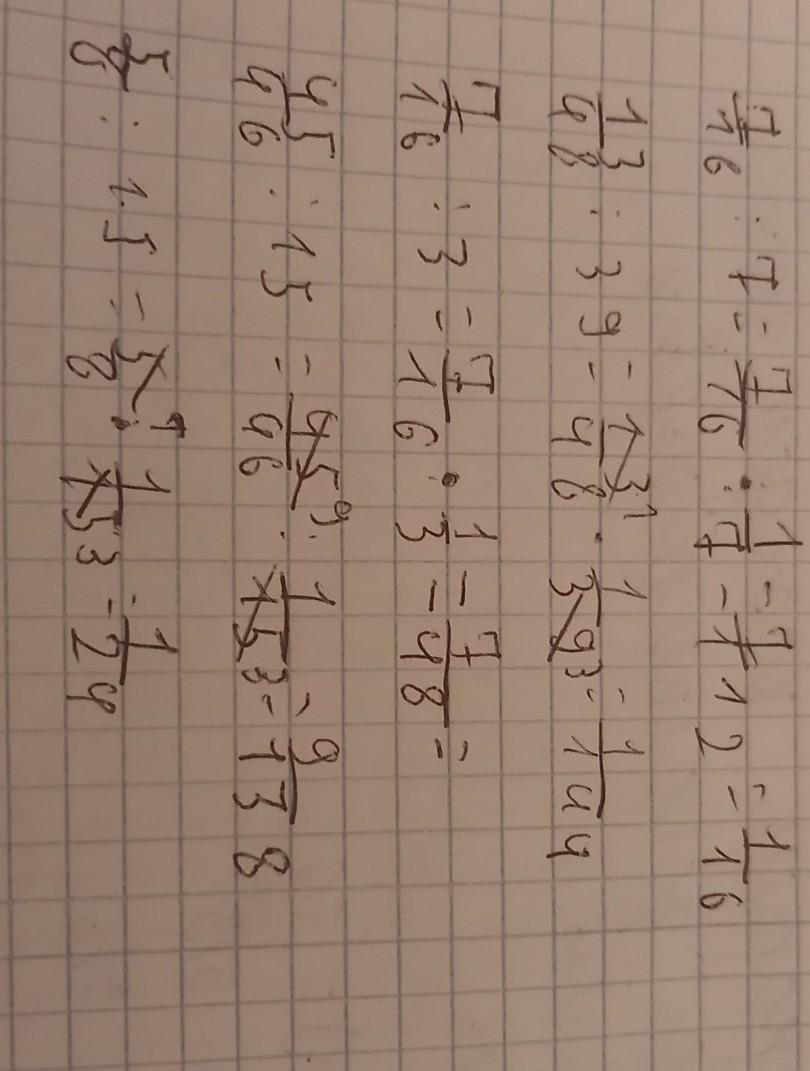 7/16 : 7 = 7/16 · 1/7 = 7/112 = 1/16
13/48 : 39 = 13/48 1 · 1/39 3 = 1/144
7/16 : 3 = 7/16 · 1/3 = 7/48 =
45/46 : 15 = 45/46 9 · 1/15 3 = 9/138
5/8 : 15 = 5/8 1 · 1/15 3 = 1/24